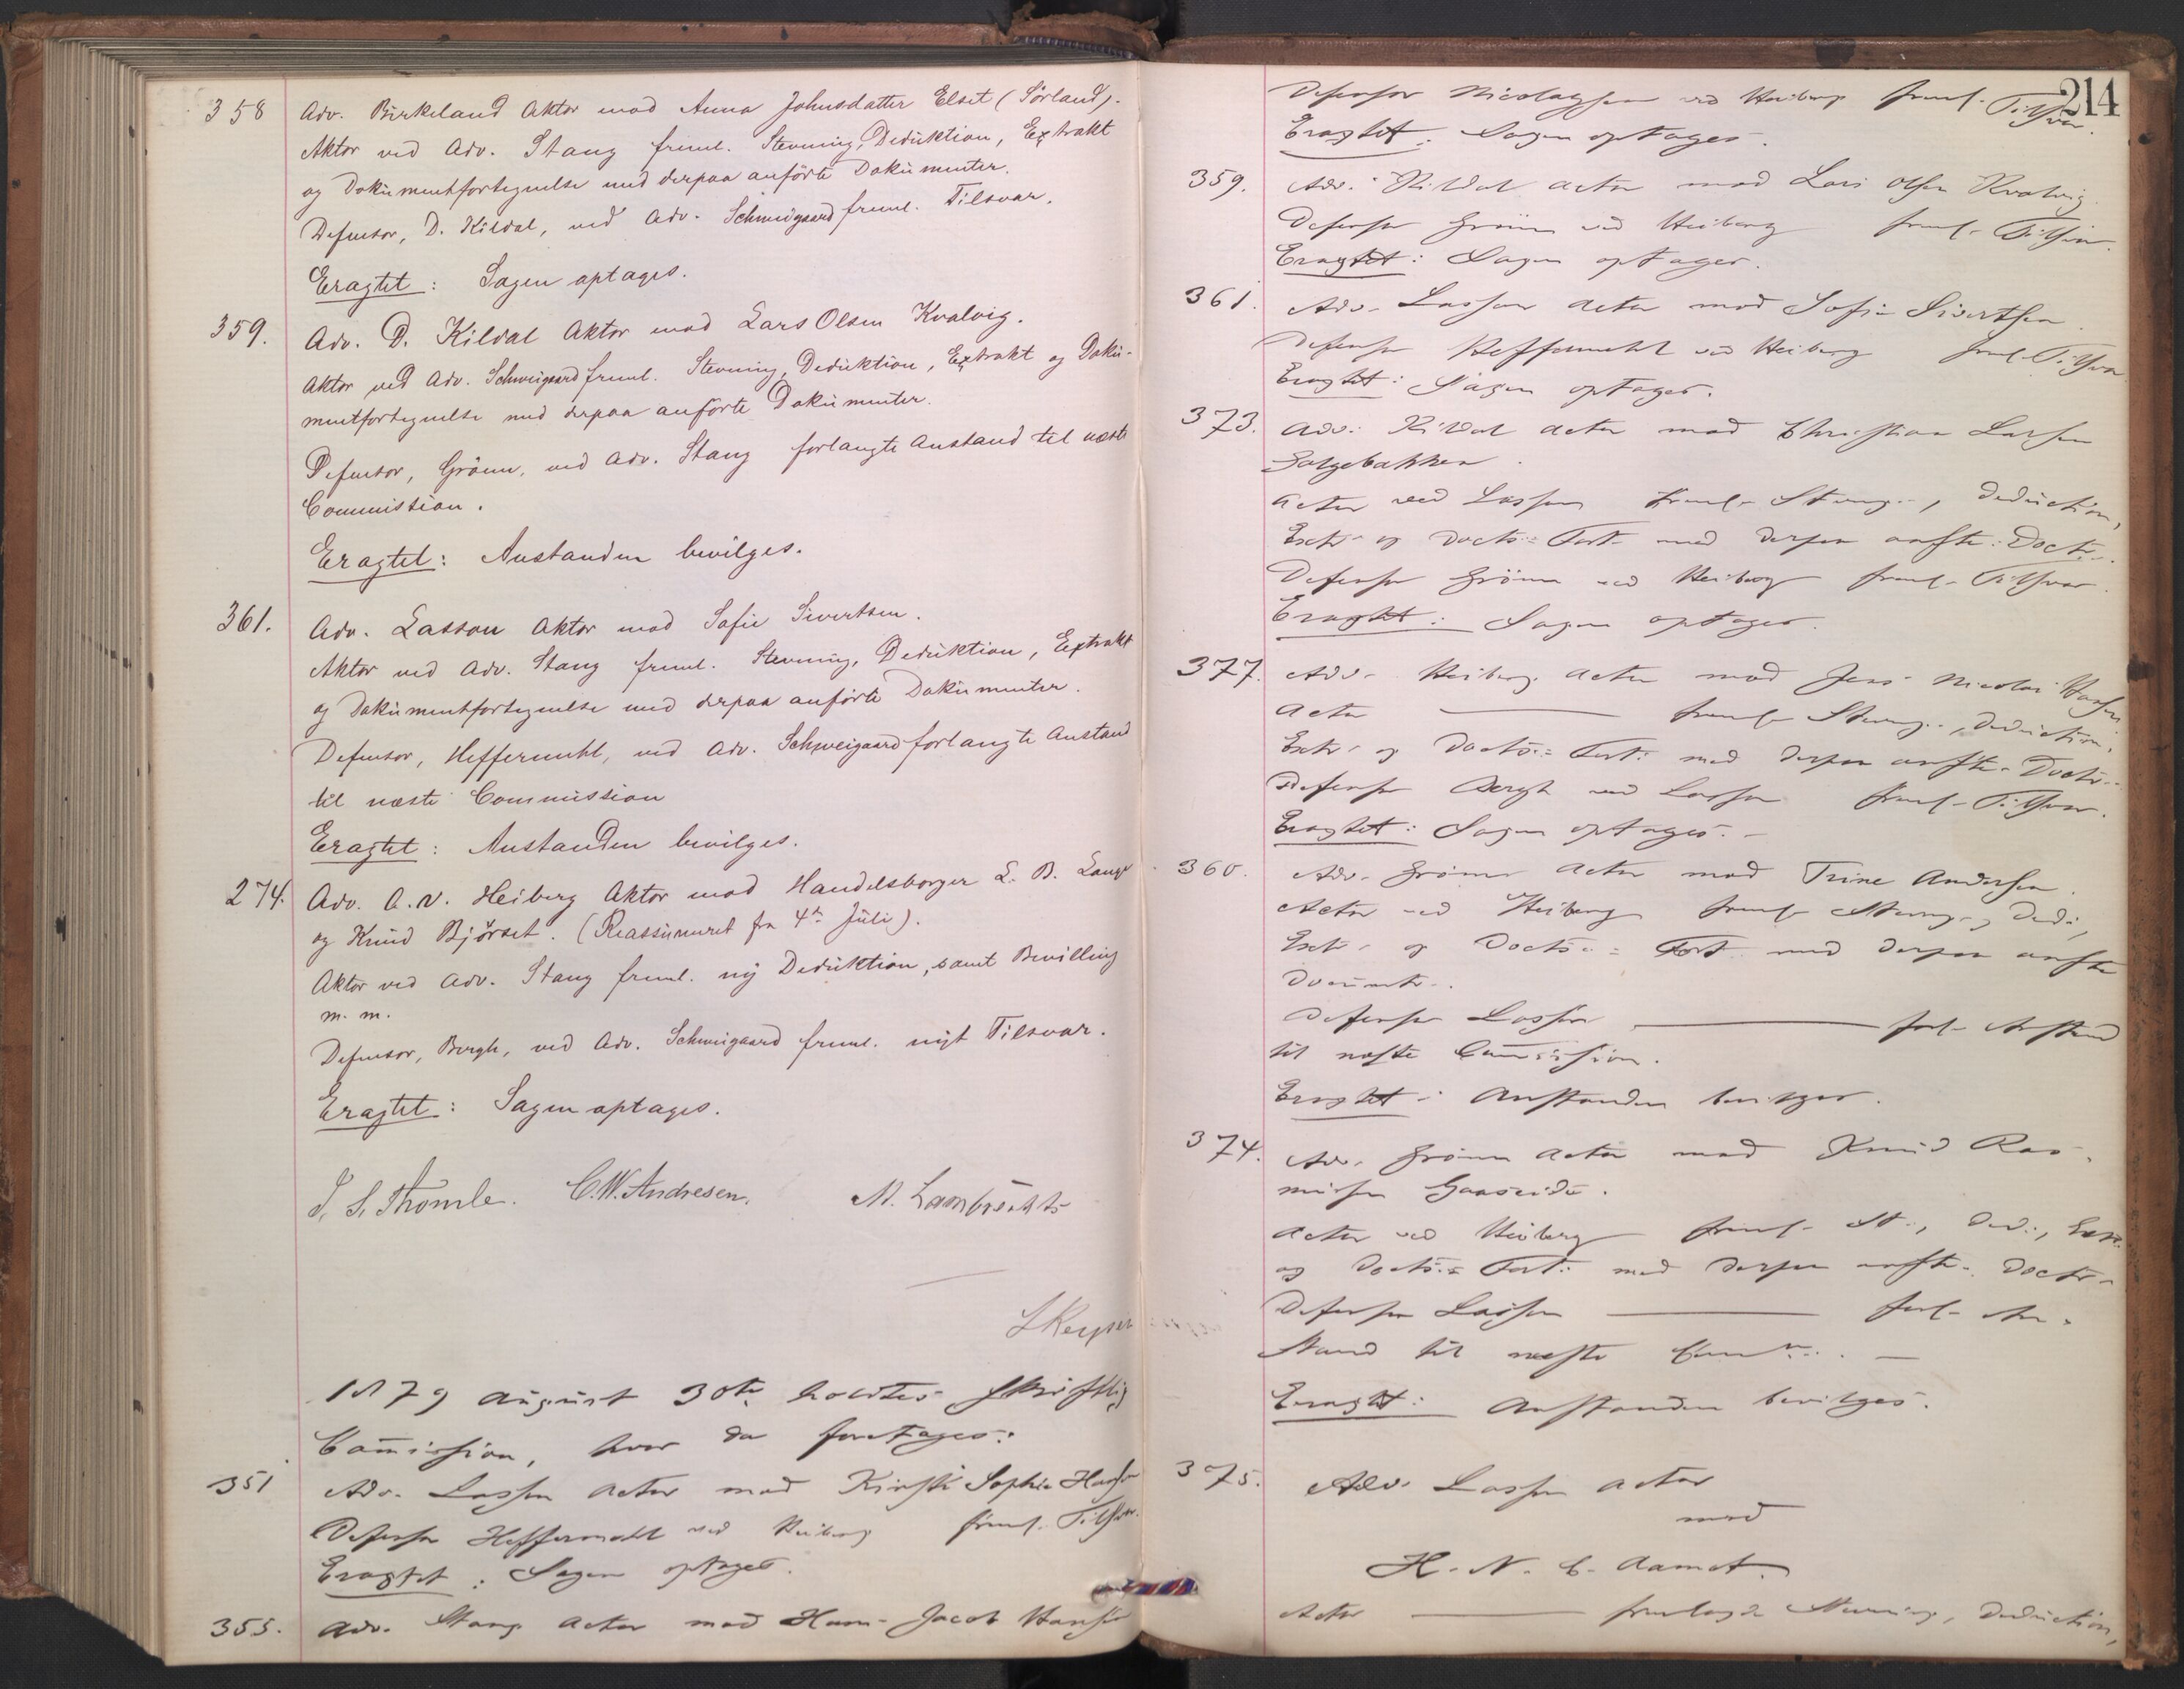 358 Adv. Birkeland Aktor mod Anna Johnsdatter Elset (Sørland).
Aktor ved Adv. Stang freml. Stevning, Deduktion, Extrakt
og Dokumentfortegnelse med derpaa anførte Dokumenter.
Defensor, D. Kildal, ved Adv. Schweigaard freml. Tilsvar.
Eragtet: Sagen optages.
359. Adv. D. Kildal Aktor mod Lars Olsen Kvalvig.
Aktor ved Adv. Schweigaard freml. Stevning, Deduktion, Extrakt og Doku-
mentfortegnelse med derpaa anførte Dokumenter.
Defensor, Grönn, ved Adv. Stang forlangte Anstand til næste
Commission.
Eragtet: Anstanden bevilges.
361. Adv. Lasson Aktor mod Sofie Sivertsen.
Aktor ved Adv. Stang freml. Stevning, Deduktion, Extrakt
og Dokumentfortegnelse med derpaa anførte Dokumenter.
Defensor, Heffermehl, ved Adv. Schweigaard forlangte Anstand
til næste Commission
Eragtet: Anstanden bevilges.
274. Adv. A. V. Heiberg Aktor mod Handelsborger L. B. Lange
og Knud Björset. (Reassumeret fra 4de Juli).
Aktor ved Adv. Stang freml. ny Deduktion, samt Bevilling
m. m.
Defensor, Bergh, ved Adv. Schweigaard freml. nyt Tilsvar.
Eragtet: Sagen optages.
Thomle. C. W. Andresen. M. Lambrechts
Keyser
1879 August 30te holdtes skriftlig
Commission, hvor da foretages:
351 Adv. Lasson Actor mod Kirsti Sophie Hansen
Defensor Heffermehl ved Heiberg freml. Tilsvar.
Eragtet: Sagen optages.
355. Adv. Stang Actor mod Hans Jacob Hansen
214
Defensor Nicolaysen ved Heiberg freml. Tilsvar.
Eragtet: Sagen optages.
359. Adv. Kildal Actor mod Lars Olsen Kvalvig.
Defensor Grönn ved Heiberg freml. Tilsvar.
Eragtet: Sagen optages.
361. Adv. Lasson Actor mod Sofie Sivertsen.
Defensor Heffermehl ved Heiberg freml. Tilsvar
Eragtet: Sagen optages.
373. Adv. Kildal Actor mod Christian Larsen
Galgebakken.
Actor ved Lasson freml. Stevng., Deduction,
Extr. og Docts.= Fort. med derpaa anfte. Doctr.
Defensor Grönn ved Heiberg freml. Tilsvar.
Eragtet: Sagen optages.
377. Adv. Heiberg Actor mod Jens Nicolai Hansen
Actor — freml. Stevng., Deduction,
Extr. og Docts.= Fort. med derpaa anfte. Doctr.
Defensor Bergh ved Lasson freml. Tilsvar.
Eragtet: Sagen optages.
360. Adv. Grönn Actor mod Trine Andersen.
Actor ved Heiberg freml. Stevng., Ded.,
Extr. og Docts.= Fort. med derpaa anfte
Documtr.
Defensor Lasson — forl. Anstand
til næste Commission.
Eragtet: Anstanden bevilges.
374. Adv. Grönn Actor mod Knud Ras-
musen Gaaseide.
Actor ved Heiberg freml. St., Ded., Extr.
og Docts.= Fort. med derpaa anfte. Doctr.
Defensor Lasson — forl. An-
stand til næste Comn.
Eragtet: Anstanden bevilges.
375. Adv. Lasson Actor
mod
H. N. C. Aamot.
Actor — fremlagde Stevning, Deduction,